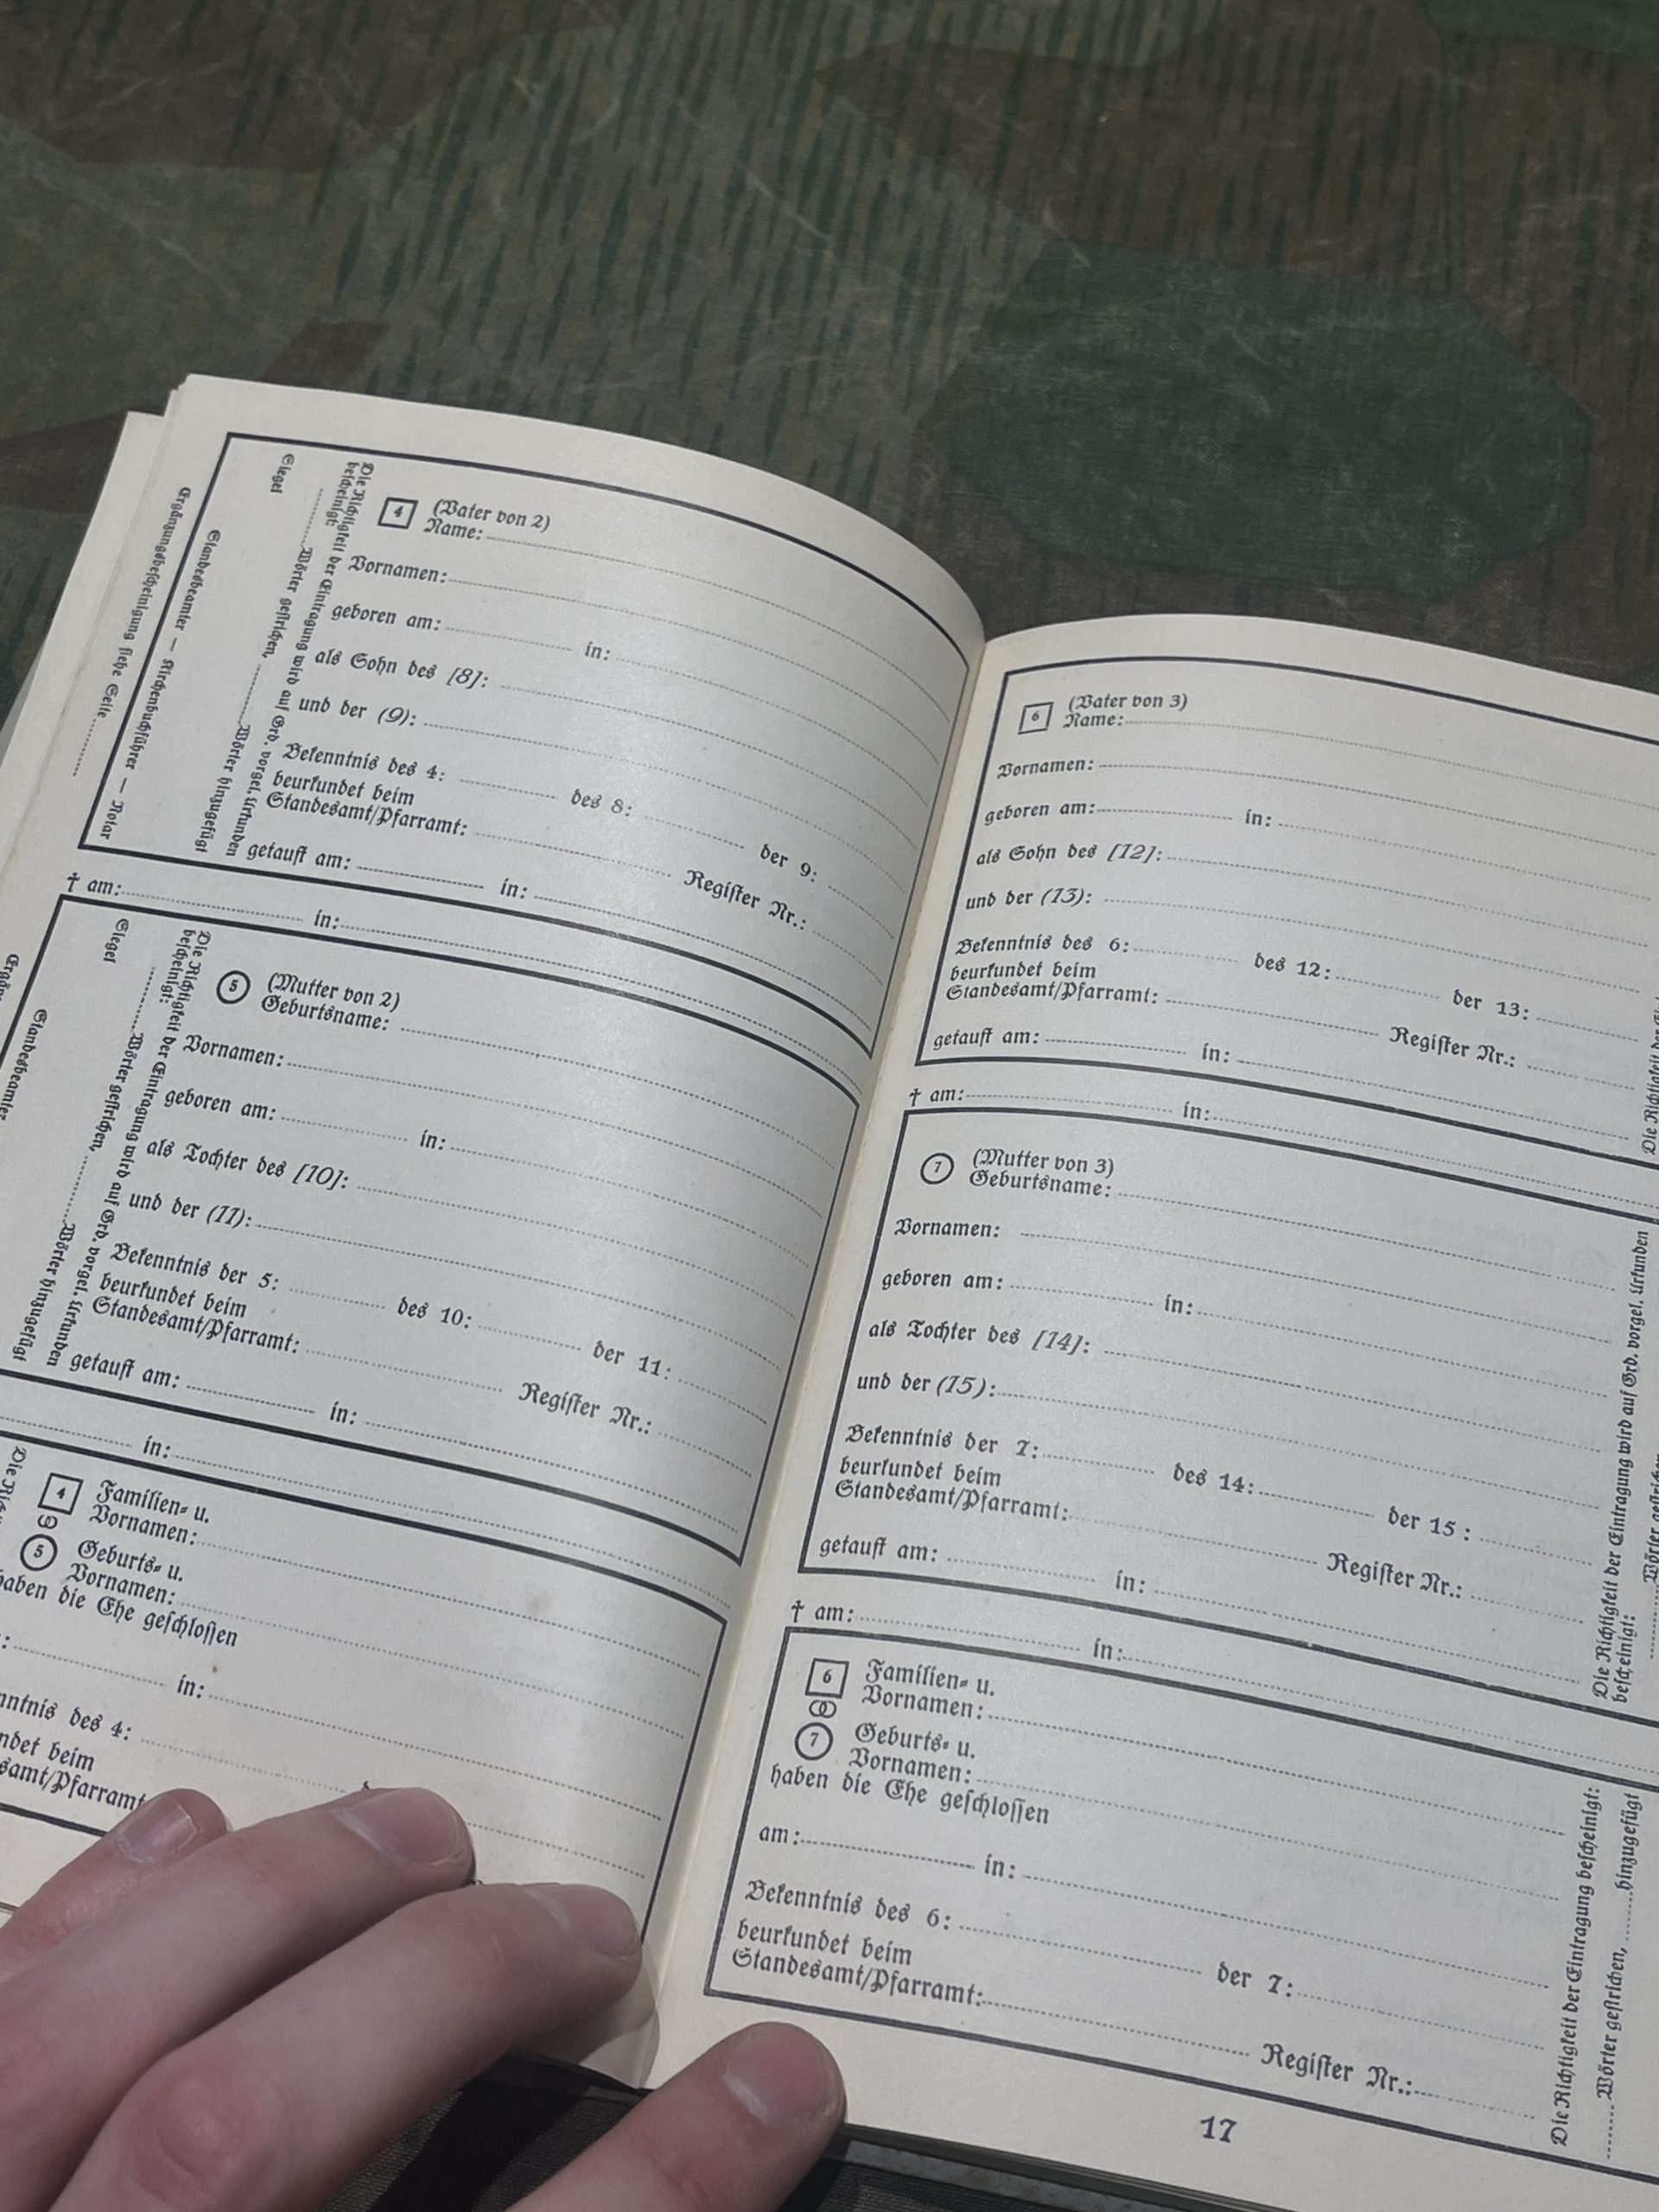 4 (Vater von 2)
Name:
Vornamen:
geboren am: in:
als Sohn des [8]:
und der (9):
Bekenntnis des 4: des 8: der 9:
beurkundet beim
Standesamt/Pfarramt: Register Nr.:
getauft am: in:
Die Richtigkeit der Eintragung wird auf Grd. vorgel. Urkunden
bescheinigt:
Wörter gestrichen, Wörter hinzugefügt
Siegel
Standesbeamter — Kirchenbuchführer — Notar
Ergänzungsbescheinigung siehe Seite
† am: in:
5 (Mutter von 2)
Geburtsname:
Vornamen:
geboren am: in:
als Tochter des [10]:
und der (11):
Bekenntnis der 5: des 10: der 11:
beurkundet beim
Standesamt/Pfarramt: Register Nr.:
getauft am: in:
Die Richtigkeit der Eintragung wird auf Grd. vorgel. Urkunden
bescheinigt:
Wörter gestrichen, Wörter hinzugefügt
Siegel
Standesbeamter
in:
4 Familien- u.
Vornamen:
5 Geburts- u.
Vornamen:
haben die Ehe geschlossen
in:
des 4:
beim
6 (Vater von 3)
Name:
Vornamen:
geboren am: in:
als Sohn des [12]:
und der (13):
Bekenntnis des 6: des 12: der 13:
beurkundet beim
Standesamt/Pfarramt: Register Nr.:
getauft am: in:
Die Richtigkeit der
† am: in:
7 (Mutter von 3)
Geburtsname:
Vornamen:
geboren am: in:
als Tochter des [14]:
und der (15):
Bekenntnis der 7: des 14: der 15:
beurkundet beim
Standesamt/Pfarramt: Register Nr.:
getauft am: in:
Die Richtigkeit der Eintragung wird auf Grd. vorgel. Urkunden
bescheinigt:
Wörter gestrichen
† am: in:
6 Familien- u.
Vornamen:
7 Geburts- u.
Vornamen:
haben die Ehe geschlossen
am: in:
Bekenntnis des 6: der 7:
beurkundet beim
Standesamt/Pfarramt: Register Nr.:
Die Richtigkeit der Eintragung bescheinigt:
Wörter gestrichen, hinzugefügt
17